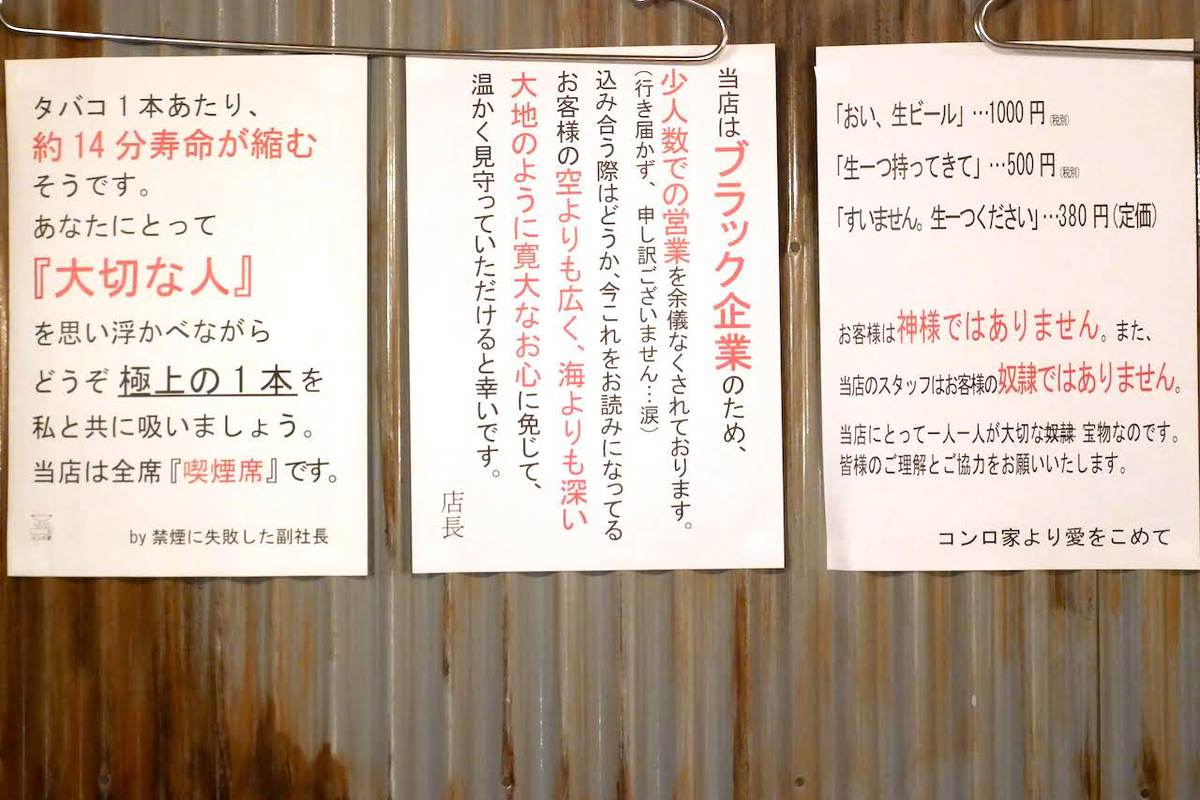 タバコ1本あたり、
約14分寿命が縮む
そうです。
あなたにとって
『大切な人』
を思い浮かべながら
どうぞ 極上の1本を
私と共に吸いましょう。
当店は全席『喫煙席』です。
by 禁煙に失敗した副社長
当店はブラック企業のため、
少人数での営業を余儀なくされております。
(行き届かず、申し訳ございません…涙)
込み合う際はどうか、今これをお読みになってる
お客様の空よりも広く、海よりも深い
大地のように寛大なお心に免じて、
温かく見守っていただけると幸いです。
店長
「おい、生ビール」…1000円(税別)
「生一つ持ってきて」…500円(税別)
「すいません。生一つください」…380円(定価)
お客様は神様ではありません。また、
当店のスタッフはお客様の奴隷ではありません。
当店にとって一人一人が大切な奴隷 宝物なのです。
皆様のご理解とご協力をお願いいたします。
コンロ家より愛をこめて